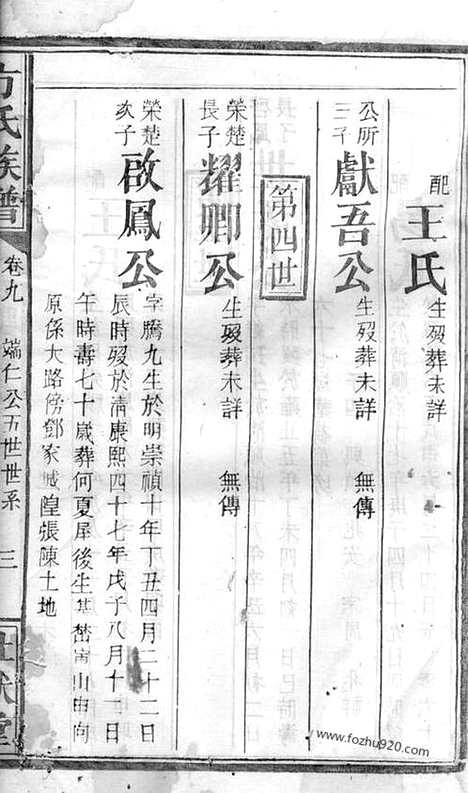 配王氏 生歿葬未詳
公所三子 獻吾公 生歿葬未詳 無傳
第四世
榮楚長子 耀卿公 生歿葬未詳 無傳
榮楚次子 啟鳳公 字騰九生於明崇禎十年丁丑四月二十二日
辰時歿於清康熙四十七年戊子八月十一日
午時壽七十歲葬何夏犀後生基 山申向
原係大路傍鄧家城隍張陳土地
方氏族譜 卷九 端仁公五世世系 三
www.fozhu920.com